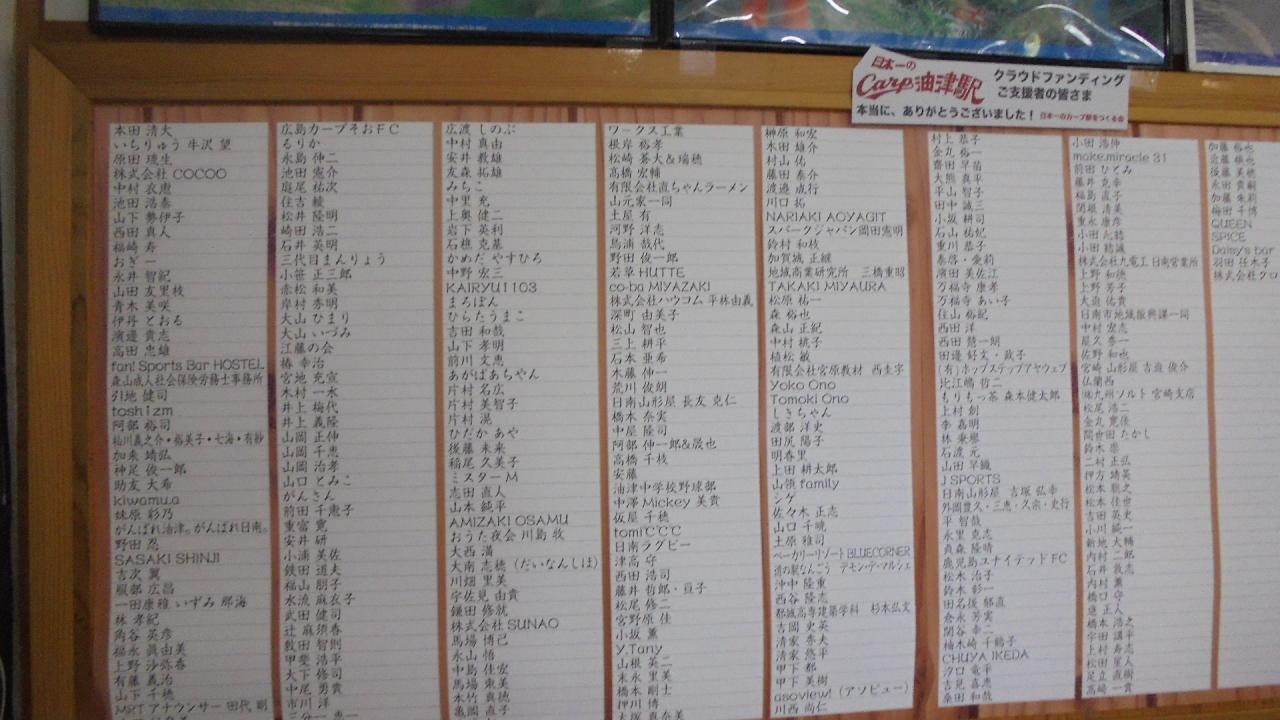 日本一の
Carp油津駅
クラウドファンディング
ご支援者の皆さま
本当に、ありがとうございました！
日本一のカープ駅をつくる会
本田 清大
いちりゅう 牛沢 望
原田 琉生
株式会社 COCOO
中村 衣恵
池田 浩泰
山下 勢伊子
西田 真人
福崎 寿
おぎー
永井 智紀
山田 友里枝
青木 美咲
伊丹 とおる
濱邊 貴志
高田 忠雄
fan! Sports Bar HOSTEL
森山成人社会保険労務士事務所
引地 健司
toshizm
阿部 裕司
加来 靖弘
神足 俊一郎
助友 大希
kiwamu.a
妹原 彩乃
がんばれ油津。がんばれ日南。
野田 忍
SASAKI SHINJI
吉次 翼
服部 広昌
一田康雅 いずみ 那海
林 孝紀
角谷 英彦
福永 眞由美
上野 沙弥香
有薗 義治
山下 千穂
MRT アナウンサー 田代 剛
広島カープそおＦＣ
るりか
永島 伸二
池田 憲介
庭尾 祐次
住吉 綾
松井 隆明
崎田 浩二
石井 英明
三代目まんりょう
小笹 正三郎
赤松 和美
岸村 秀明
大山 ひまり
大山 いづみ
江藤の会
椿 幸治
宮地 充宣
木村 一水
井上 梅代
井上 義隆
山岡 正伸
山岡 千恵
山岡 治孝
山口 とみこ
がんさん
前田 千恵子
重富 寛
安井 研
小浦 美佐
鉄田 道夫
福山 朋子
水流 麻衣子
武田 健司
辻 麻須香
敷田 智則
甲斐 浩平
大下 修司
中尾 勇貴
市川 洋
広渡 しのぶ
中村 真由
安井 教雄
友森 拓雄
みちこ
中里 充
上奥 健二
岩下 英利
石樵 克基
かめだ やすひろ
中野 宏三
KAIRYU1103
まろぽん
ひらたうまこ
吉田 和哉
山下 孝明
前川 文恵
あがぱあちゃん
片村 名広
片村 美智子
片村 滉
ひだか あや
後藤 未来
稲尾 久美子
ミスターＭ
志田 直人
山本 純平
AMIZAKI OSAMU
おうた夜会 川島 牧
大西 満
大南 志穂（だいなんしほ）
川畑 里美
宇佐見 由貴
鎌田 修就
株式会社 SUNAO
馬場 博己
永山 悟
中島 佳宏
馬場 東美
大竹 真穂
亀岡 直子
ワークス工業
根岸 侑希
松崎 蒼大＆瑞穂
高橋 宏輔
有限会社直ちゃんラーメン
山元家一同
土屋 有
河野 洋志
鳥浦 哉代
野田 俊一郎
若草 HUTTE
co-ba MIYAZAKI
株式会社ハウコム 平林由義
深町 由美子
松山 智也
三上 耕平
石本 亜希
木藤 伸一
荒川 俊朗
日南山形屋 長友 克仁
橋本 奈実
中屋 隆司
阿部 伸一郎&晟也
高橋 千枝
安藤
油津中学校野球部
中澤 Mickey 美貴
仮屋 千穂
tomi℃℃
日南ラグビー
津高 守
西田 浩司
藤井 哲郎・亘子
松尾 修二
宮野原 佳
小坂 薫
Y.Tany
山根 英二
末永 里美
橋本 剛士
押川 博
大塚 真奈美
榊原 和宏
本田 雄介
村山 佑
藤田 泰介
渡邉 成行
川口 拓
NARIAKI AOYAGIT
スパークジャパン岡田憲明
鈴村 和枝
加賀城 正綾
地域商業研究所　三橋重昭
TAKAKI MIYAURA
松原 祐一
森 裕也
森山 正紀
中村 桃子
植松 敏
有限会社宮原教材　西圭字
Yoko Ono
Tomoki Ono
しきちゃん
渡部 洋史
田尻 陽子
明春里
上田 耕太郎
山領 family
シゲ
佐々木 正志
山口 千暁
土原 雅司
ベーカリーリゾート BLUECORNER
道の駅なんごう　デモン・デ・マルシェ
沖中 隆重
西谷 隆志
都城高専建築学科　杉本弘文
吉岡 史英
清家 秀夫
清家 悠平
甲下 都
甲下 美樹
asoview!（アソビュー）
川西 尚仁
村上 恭子
金丸 裕一
齋田 早苗
大熊 真平
平山 智子
田中 誠三
小坂 耕司
石山 祐妃
重川 恭子
泰啓・愛莉
濱田 美佐江
万福寺 康孝
万福寺 あい子
住山 裕紀
西田 洋
西田 慧一朗
田邊 好文・政子
(有)ホップステップアヤウェブ
比江嶋 哲二
もりもっ茶 森本健太郎
上村 創
李 嘉明
林 秉燮
石渡 元
山田 早織
J SPORTS
日南山形屋　吉塚 弘幸
外岡豊久・三恵・久宗・史行
平 智哉
永里 克志
貞森 隆晴
鹿児島ユナイテッドＦＣ
松木 治子
鈴木 彰一
田名後 郁直
倉永 芳実
関谷 幸二
柚木崎 千鶴子
CHUYA IKEDA
汐口 竜平
吉見 喜恵
桑田 和哉
小田 浩伸
make.miracle 31
前田 ひとみ
藤井 克幸
福島 直子
関根 清美
重永 康彦
小田 心結
小田 結誠
株式会社九電工 日南営業所
上野 和徳
上野 芳子
大迫 佑貴
日南市地域振興課一同
中村 宏志
屋久 泰一
佐野 和也
宮崎 山形屋 吉迫 俊介
仏蘭西
㈱九州ソルト 宮崎支店
松尾 浩二
金丸 寛俊
間世田 たかし
鈴木 崇
二村 正弘
押方 靖英
松本 乾之
松本 佳世
吉田 英史
小川 純一
新地 大輔
内村 二郎
石井 敦志
内村 薫
橋口 守
進 正人
橋本 浩之
宇田 講平
上村 寿志
松田 星人
足立 直樹
高崎 一貴
加藤 裕也
近藤 雄也
後藤 美穂
永田 貴嗣
加藤 朱莉
梅田 千博
QUEEN
SPICE
Daisy's bar
羽田 任木子
株式会社クロ